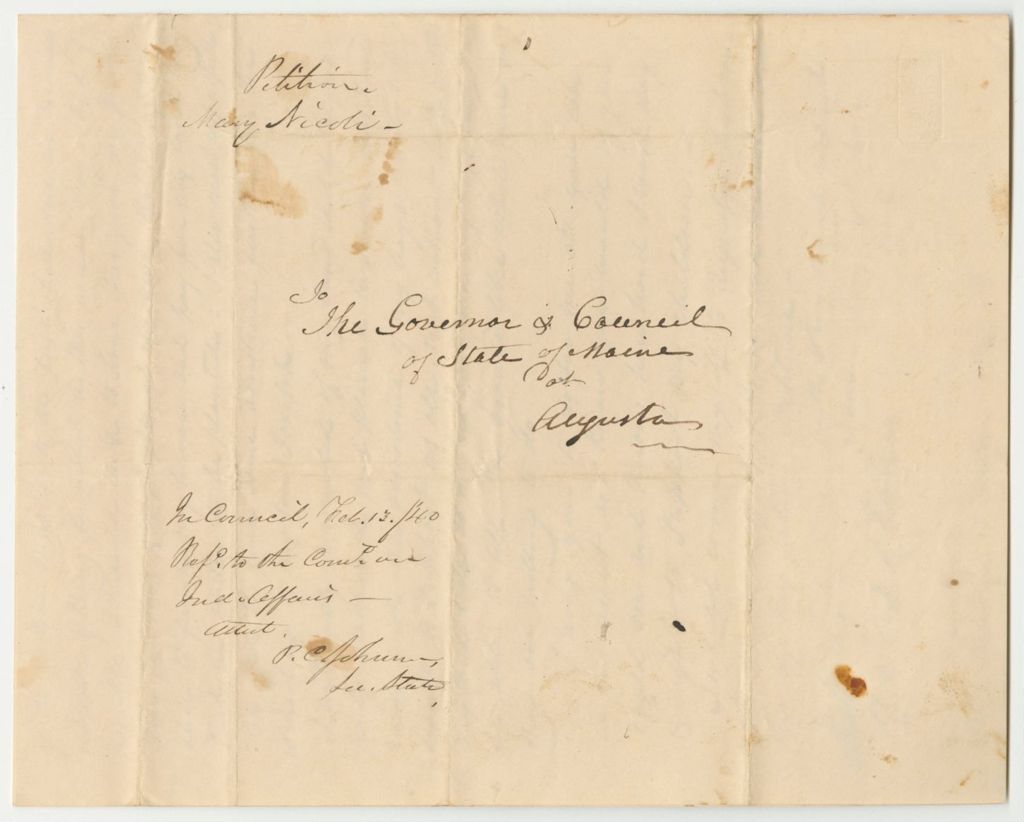 Petition.
Mary Nicoli -
To
The Governor & Council
of State of Maine
at
Augusta
In Council, Feb. 13. 1840
Refd. to the Comte. on
Ind. Affairs —
Attest.
P. C. Johnson,
Sec. State,